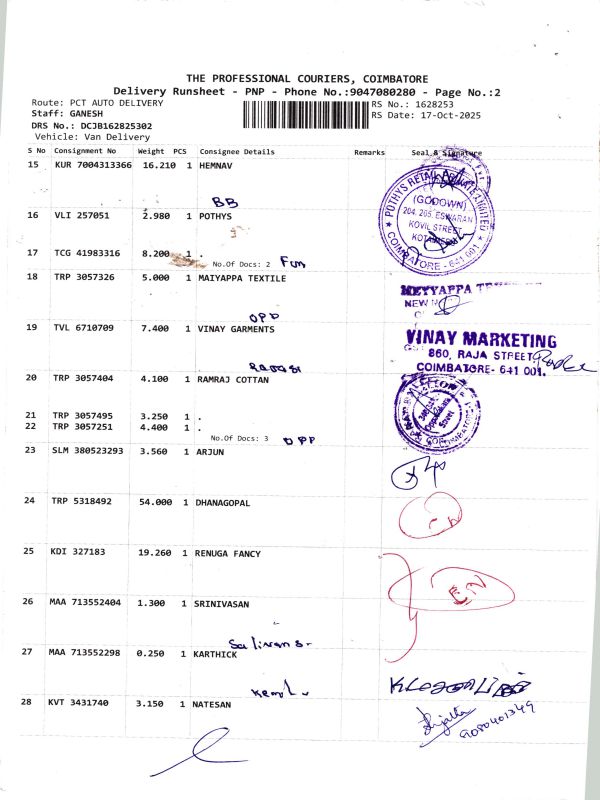 THE PROFESSIONAL COURIERS, COIMBATORE
Delivery Runsheet - PNP - Phone No.:9047080280 - Page No.:2
Route: PCT AUTO DELIVERY
RS No.: 1628253
Staff: GANESH
RS Date: 17-Oct-2025
DRS No.: DCJB162825302
Vehicle: Van Delivery
S No Consignment No Weight PCS Consignee Details Remarks Seal & Signature
15 KUR 7004313366 16.210 1 HEMNAV
BB
16 VLI 257051 2.980 1 POTHYS
POTHYS RETAIL PRIVATE LIMITED
(GODOWN)
204, 205, ESWARAN
KOVIL STREET
COIMBATORE - 641 001
17 TCG 41983316 8.200 1 .
No.Of Docs: 2
18 TRP 3057326 5.000 1 MAIYAPPA TEXTILE
MEYYAPPA
NEW
OPP
19 TVL 6710709 7.400 1 VINAY GARMENTS
VINAY MARKETING
860, RAJA STREET
COIMBATORE- 641 001.
20 TRP 3057404 4.100 1 RAMRAJ COTTAN
21 TRP 3057495 3.250 1 .
22 TRP 3057251 4.400 1 .
No.Of Docs: 3 OPP
23 SLM 380523293 3.560 1 ARJUN
24 TRP 5318492 54.000 1 DHANAGOPAL
25 KDI 327183 19.260 1 RENUGA FANCY
26 MAA 713552404 1.300 1 SRINIVASAN
27 MAA 713552298 0.250 1 KARTHICK
28 KVT 3431740 3.150 1 NATESAN
9080401349